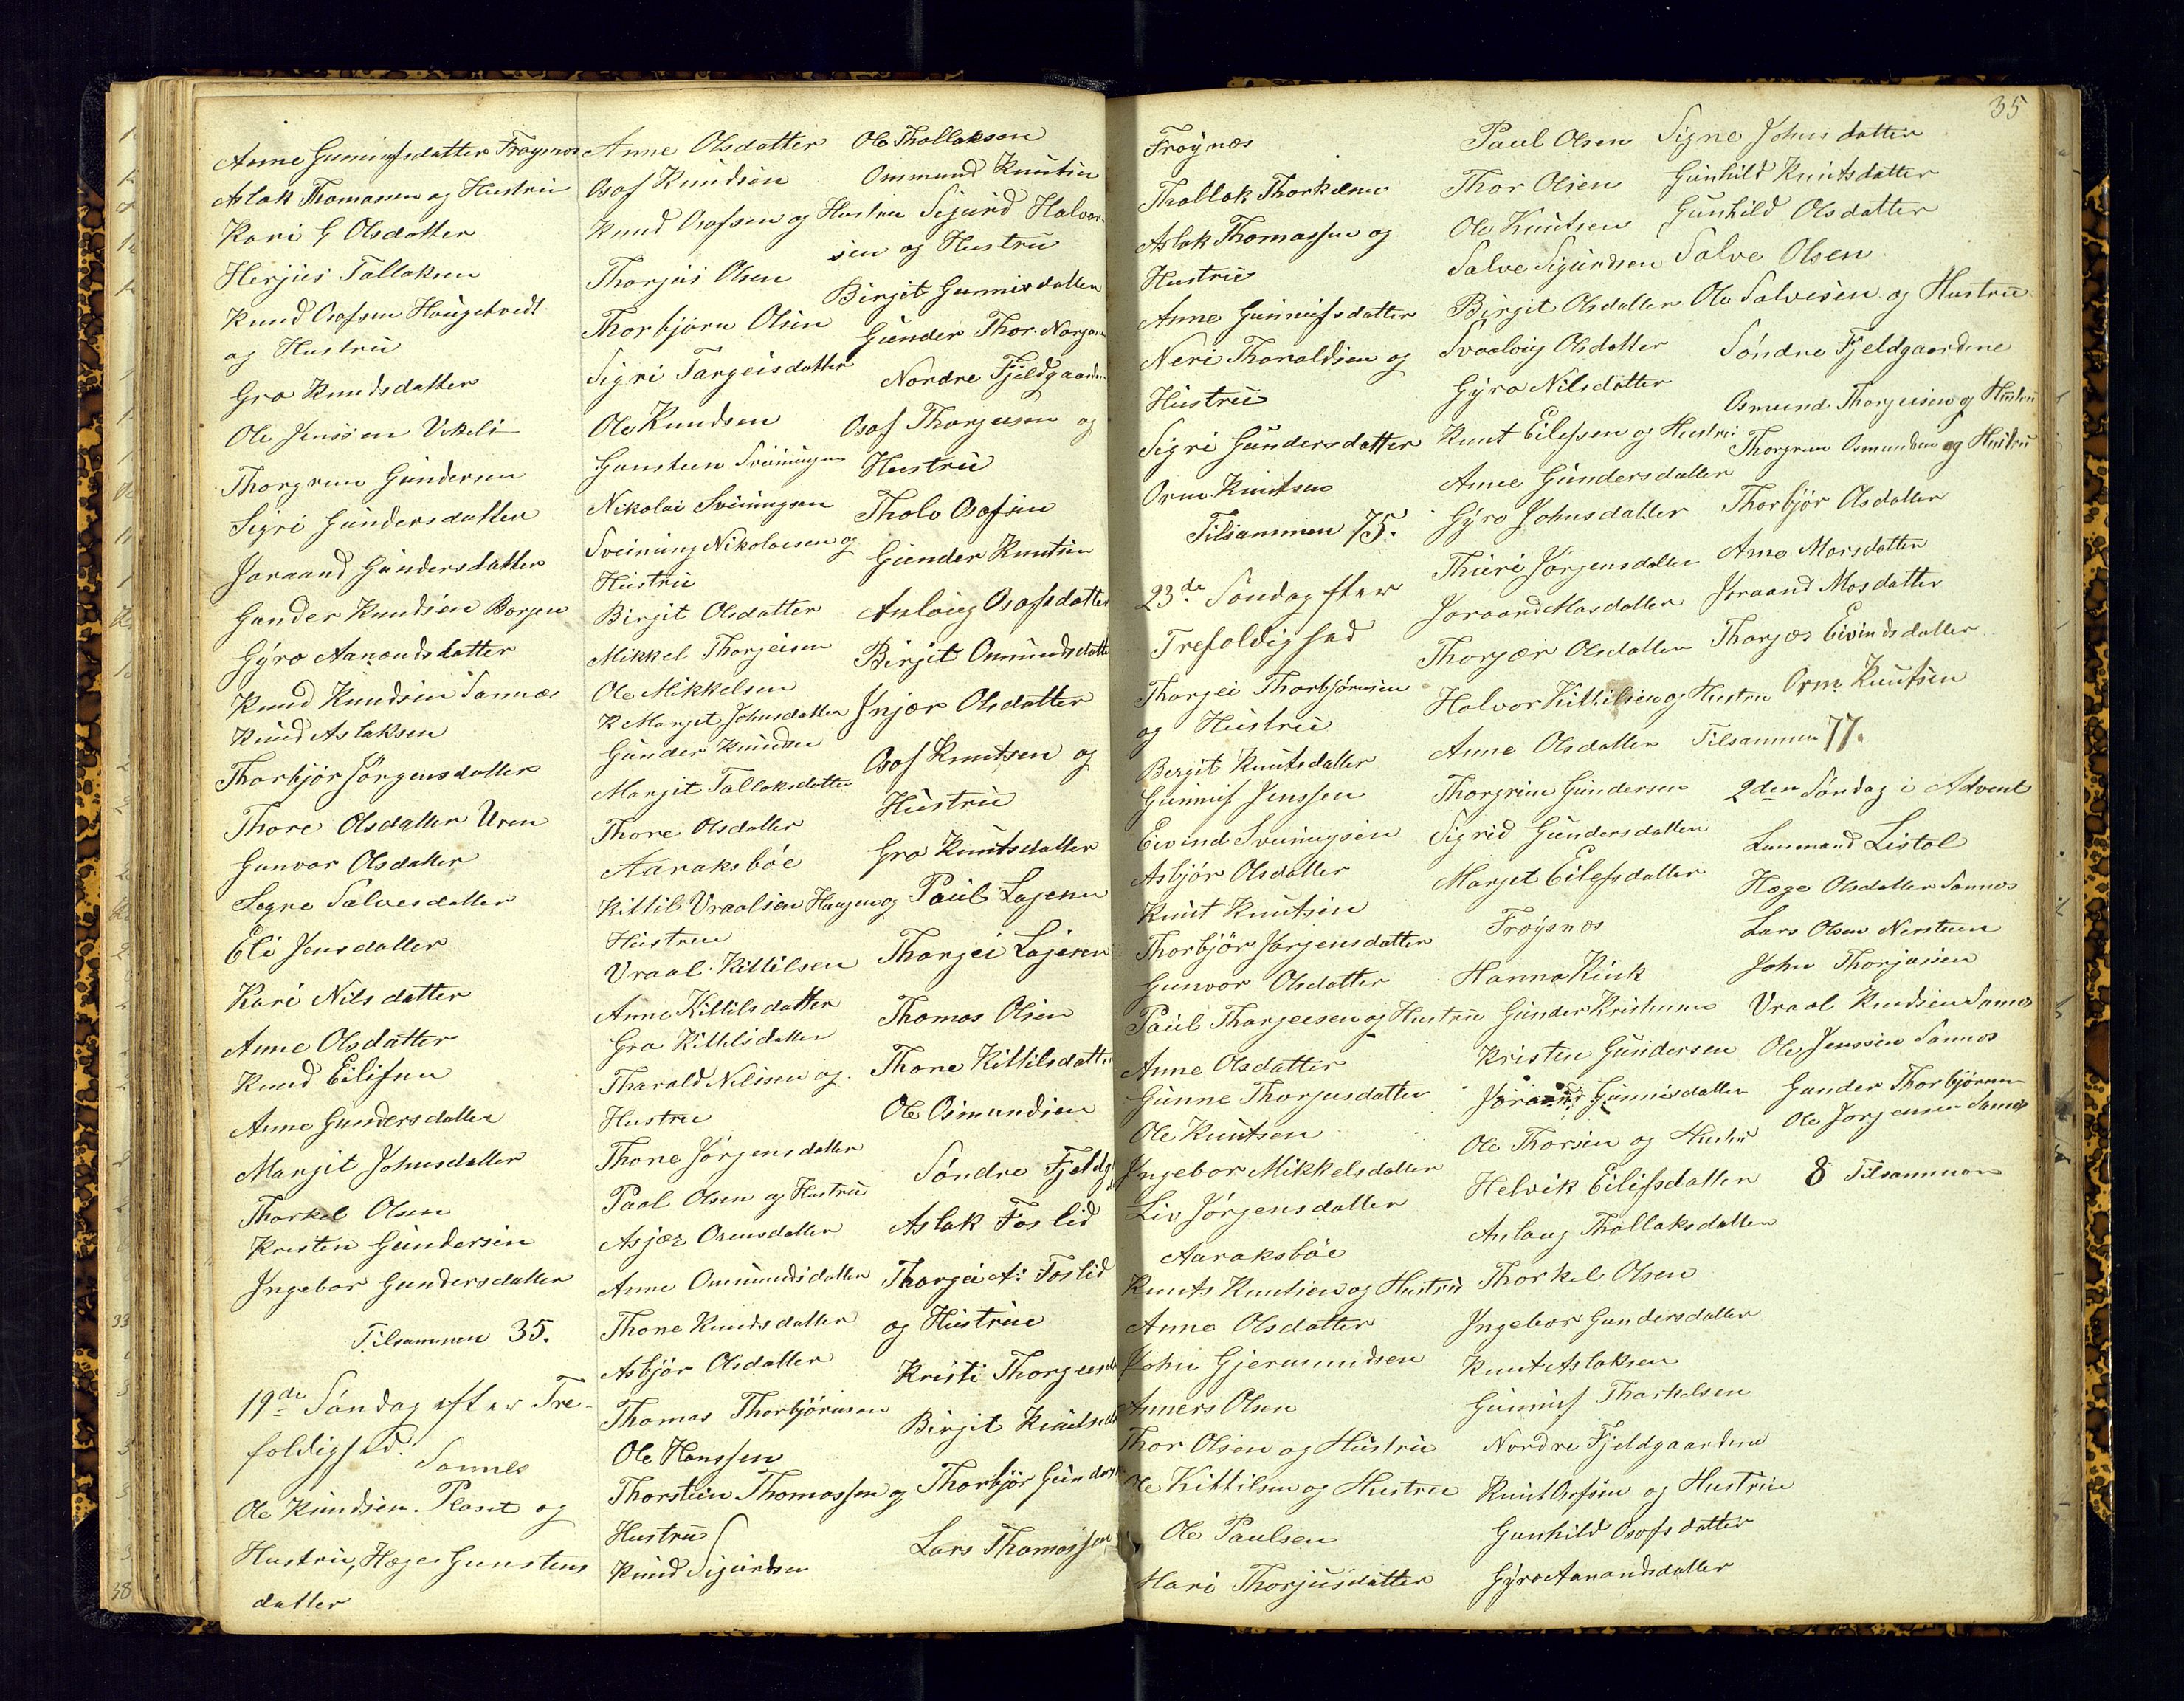 Anne Gunnufsdatter Frøysnæs
Aslak Thomassen og Hustru
Kari G Olsdatter
Herjus Tallaksen
Knud Osofsen Haugetvedt
og Hustru
Gro Knudsdatter
Ole Jenssen Vikeli
Thorgrim Gundersen
Sigri Gundersdatter
Joraand Gundersdatter
Gunder Knudsen Borgen
Gyro Aanondsdatter
Knud Knudsen Sannes
Knud Aslaksen
Thorbjør Jørgensdatter
Thore Olsdatter Uren
Gunvor Olsdatter
Signe Salvesdatter
Eli Jensdatter
Kari Nilsdatter
Anne Olsdatter
Knud Eilifsen
Anne Gundersdatter
Margit Johnsdatter
Thorkel Olsen
Kristen Gundersen
Ingebor Gundersdatter
Tilsammen 35.
19de Søndag efter Tre-
foldighed.
Sannes
Ole Knudsen Plasset og
Hustru, Hæge Gunstens
datter
Anne Olsdatter
Osof Knudsen
Knud Osofsen og Hustru
Thorjus Olsen
Thorbjørn Olsen
Sigri Targeisdatter
Ole Knudsen
Gunsten Sveiningsen
Nikolai Sveiningsen
Sveining Nikolaisen og
Hustru
Birgit Olsdatter
Mikkel Thorgeisen
Ole Mikkelsen
K Margit Johnsdatter
Gunder Knudsen
Margit Tallaksdatter
Thore Olsdatter
Aaraksbøe
Kittil Vraalsen Haugen og
Hustru
Vraal Kittilsen
Anne Kittilsdatter
Gro Kittilsdatter
Tharald Nilssen og
Hustru
Thone Jørgensdatter
Paal Olsen og Hustru
Asjær Ormsdatter
Anne Omundsdatter
Thone Knudsdatter
Asbjør Olsdatter
Thomas Thorbjørnsen
Ole Hanssen
Thorstein Thomassen og
Hustru
Knud Sigurdsen
Ole Thollakson
Ommund Knutsen
Sigurd Halvor-
sen og Hustru
Birgit Gunnisdatter
Gunder Thor. Norgaren
Nordre Fjeldgaarden
Osof Thorgeisen og
Hustru
Tholv Osofsen
Gunder Knutsen
Anlaug Osofsdatter
Birgit Omundsdatter
Injær Olsdatter
Osof Knutsen og
Hustru
Gro Knutsdatter
Paul Lajeren
Thorgei Lajeren
Thomas Olsen
Thone Kittilsdatter
Ole Osmundsen
Søndre Fjeldg
Aslak Foslid
Thorgei A: Foslid
og Hustrue
Kristi Thorgeisd
Birgit Knuts
Thorbjør Gunders
Lars Thomassen
35
Frøynæs
Thallak Thorkelsen
Aslak Thomassen og
Hustru
Anne Gunnufsdatter
Neri Tharaldsen og
Hustru
Sigri Gundersdatter
Orm Knutsen
Tilsammen 75.
23de Søndag efter
Trefoldighed
Thorgei Thorbjørnsen
og Hustru
Bergit Knutsdatter
Gunnuf Jenssen
Eivind Sveiningsen
Asbjør Olsdatter
Knut Knutsen
Thorbjør Jørgensdatter
Gunvor Olsdatter
Paul Thorgeesen og Hustru
Anne Olsdatter
Gunne Thorjusdatter
Ole Knutsen
Ingebor Mikkelsdatter
Liv Jørgensdatter
Aaraksbøe
Knuts Knutsen og Hustru
Anne Olsdatter
John Gjermundsen
Anners Olsen
Thor Olsen og Hustru
Ole Kittilsen og Hustru
Ole Paulsen
Hari Thorjusdatter
Paul Olsen
Thor Olsen
Ole Knutsen
Salve Sigurdsen
Birgit Olsdatter
Svaalvig Olsdatter
Gyro Nilsdatter
Knut Eilefsen og Hustru
Anne Gundersdatter
Gyro Johnsdatter
Thuri Jørgensdatter
Joraand Masdatter
Thorgær Olsdatter
Halvor Kittilsen og Hustru
Anne Olsdatter
Thorgrim Gundersen
Sigrid Gundersdatter
Marget Eilefsdatter
Frøysnæs
Hanna Kink
Gunder Kristensen
Kristen Gundersen
Joraand Gunnisdatter
Ole Thorsen og Hustru
Helvik Eilifsdatter
Anlaug Thallaksdatter
Thorkel Olsen
Ingebor Gundersdatter
Knut Aslaksen
Gunnuf Thorkelsen
Nordre Fjeldgaardene
Knut Osofsen og Hustrue
Gunhild Osofsdatter
Gyro Aanondsdatter
Signe Johnsdatter
Gunhild Knutsdatter
Gunhild Olsdatter
Salve Olsen
Ole Salvesen og Hustru
Søndre Fjeldgaardene
Osmund Thorgeisen og Hustru
Thorgrim Osmundsen og Hustru
Thorbjør Olsdatter
Anne Morsdatter
Joraand Mosdatter
Thorgær Eivindsdatter
Orm Knutsen
Tilsammen 77.
2den Søndag i Advent
Lensmand Listøl
Hæge Olsdatter Sannes
Lars Olsen Nersteen
John Thorjussen
Vraal Knudsen Sannes
Ole Jenssen Sannes
Gunder Thorbjørnsen
Ole Jørgensen Sannes
8 Tilsammen